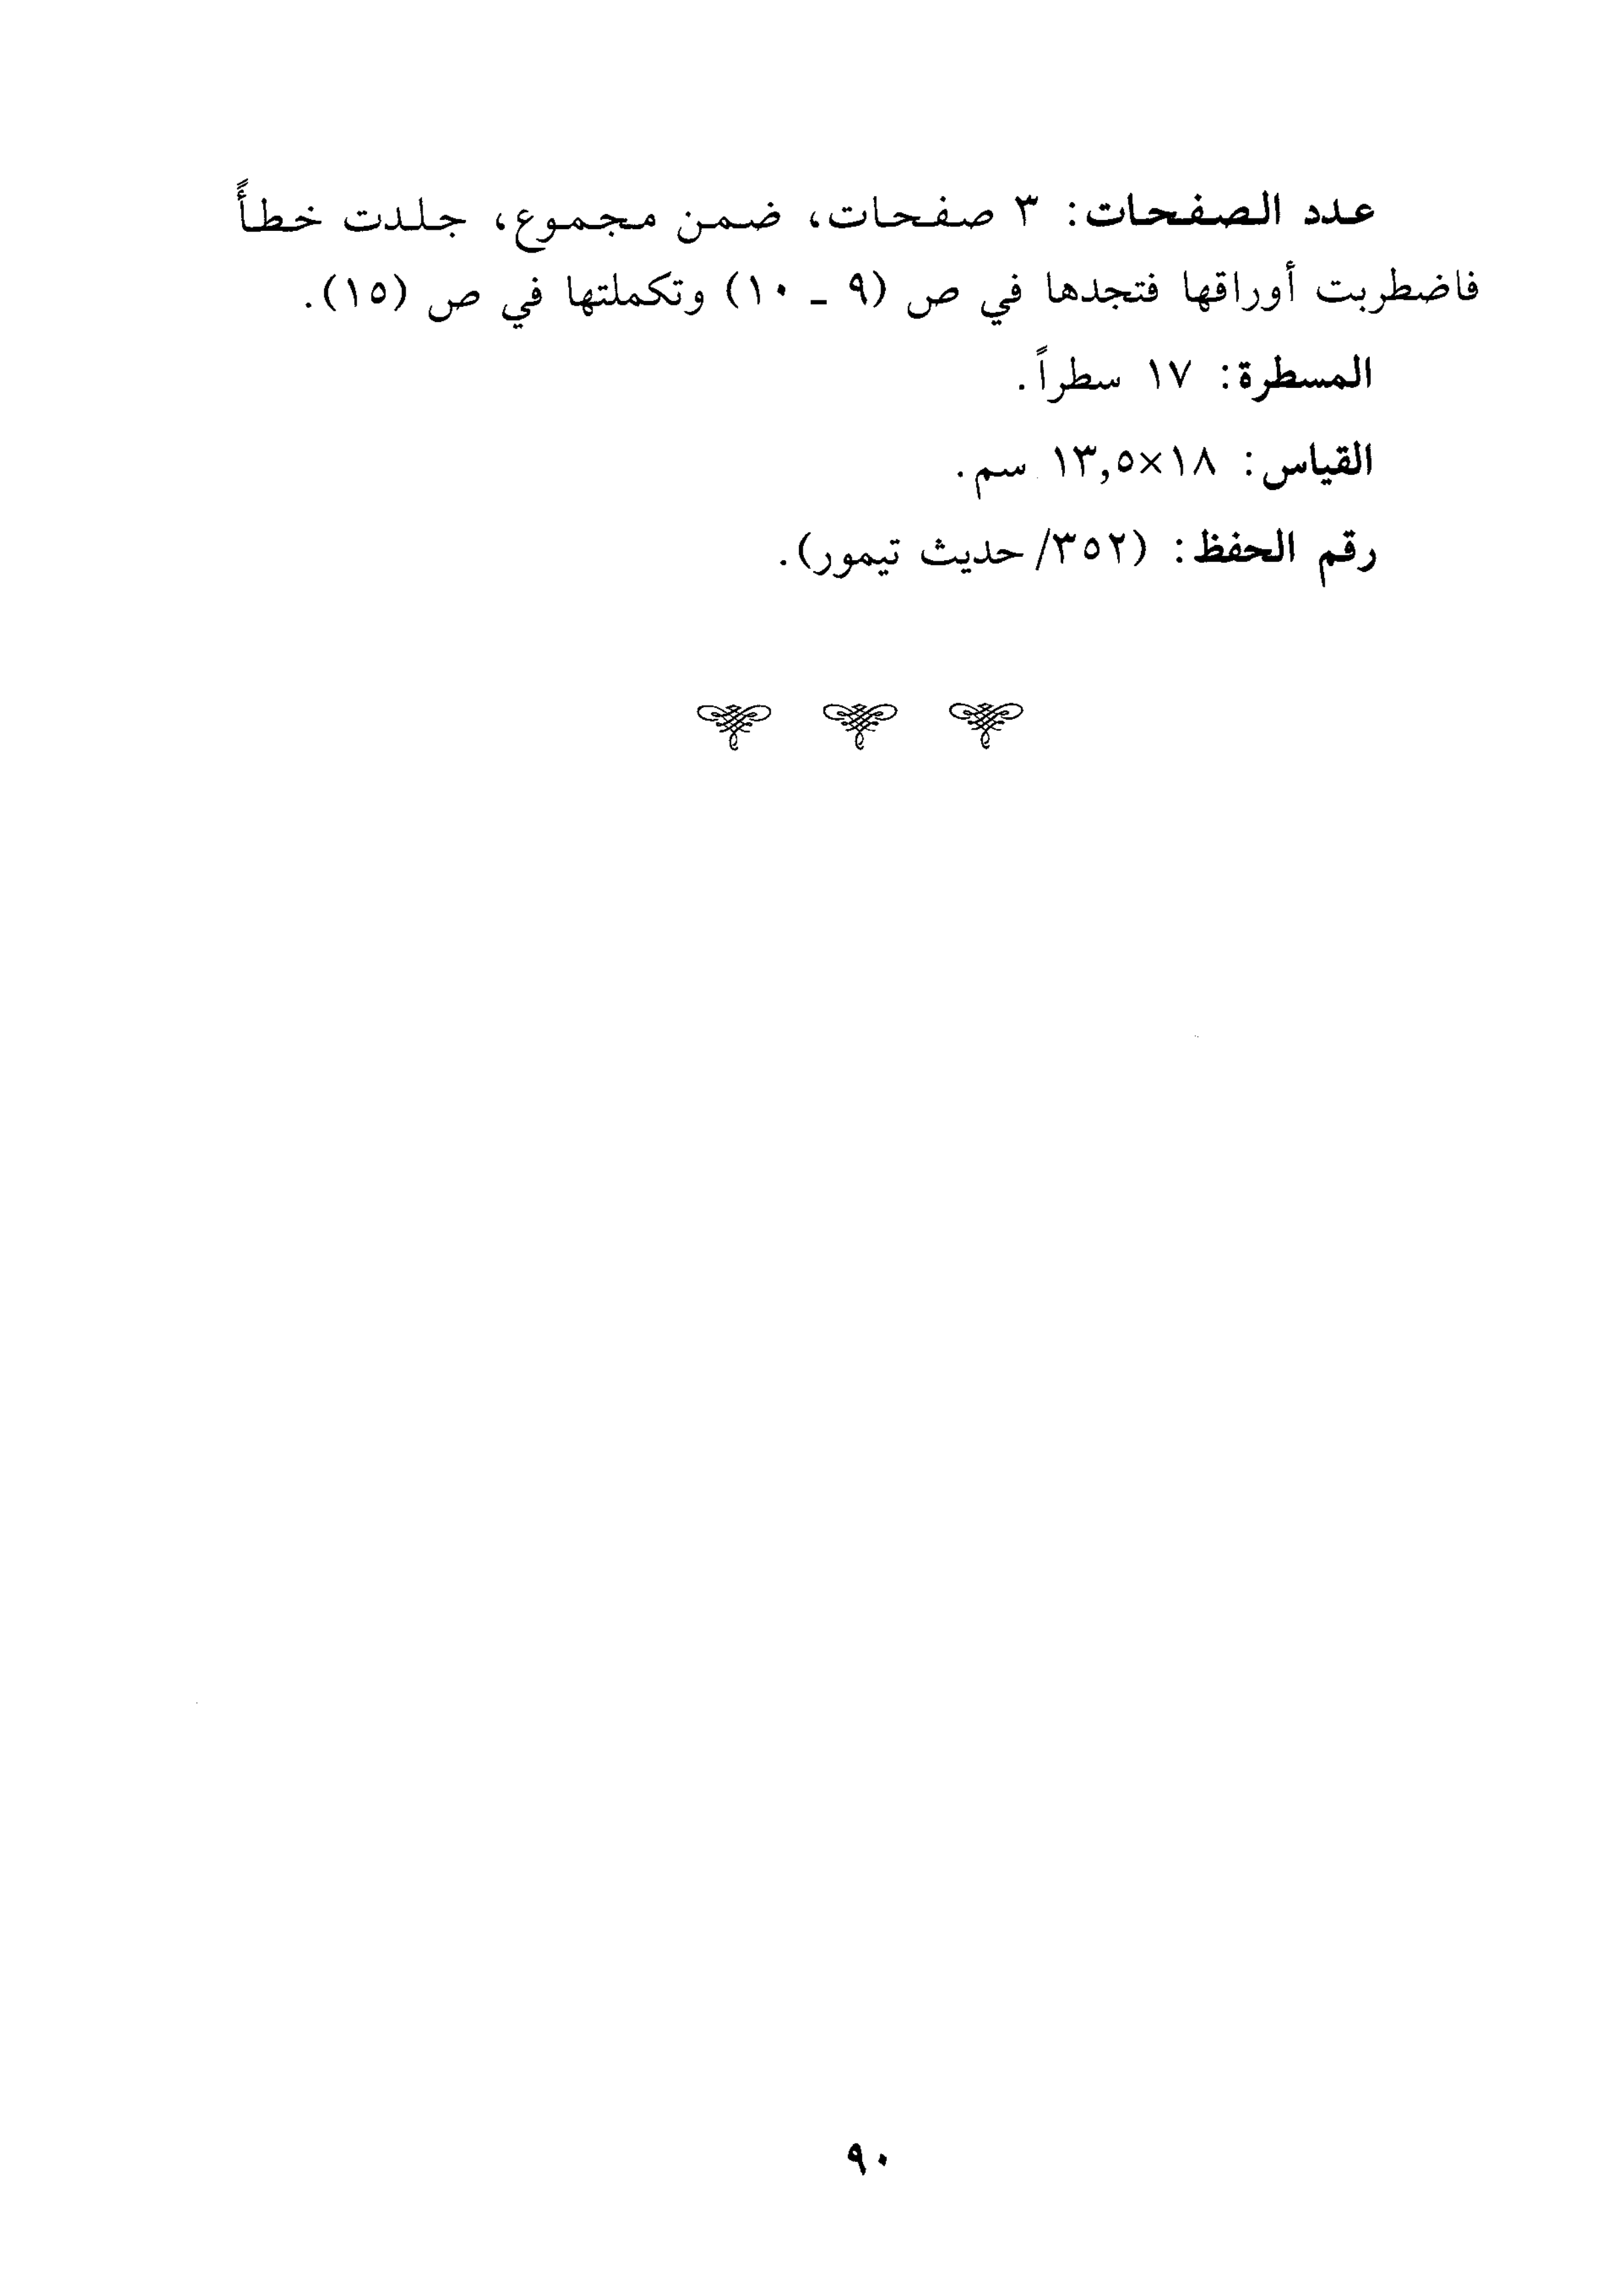 عدد الصفحات: ٣ صفحات، ضمن مجموع، جلدت خطأً
فاضطربت أوراقها فتجدها في ص (٩ ـ ١٠) وتكملتها في ص (١٥).
المسطرة: ١٧ سطراً.
القياس: ١٨×١٣,٥ سم.
رقم الحفظ: (٣٥٢/ حديث تيمور).
٩٠